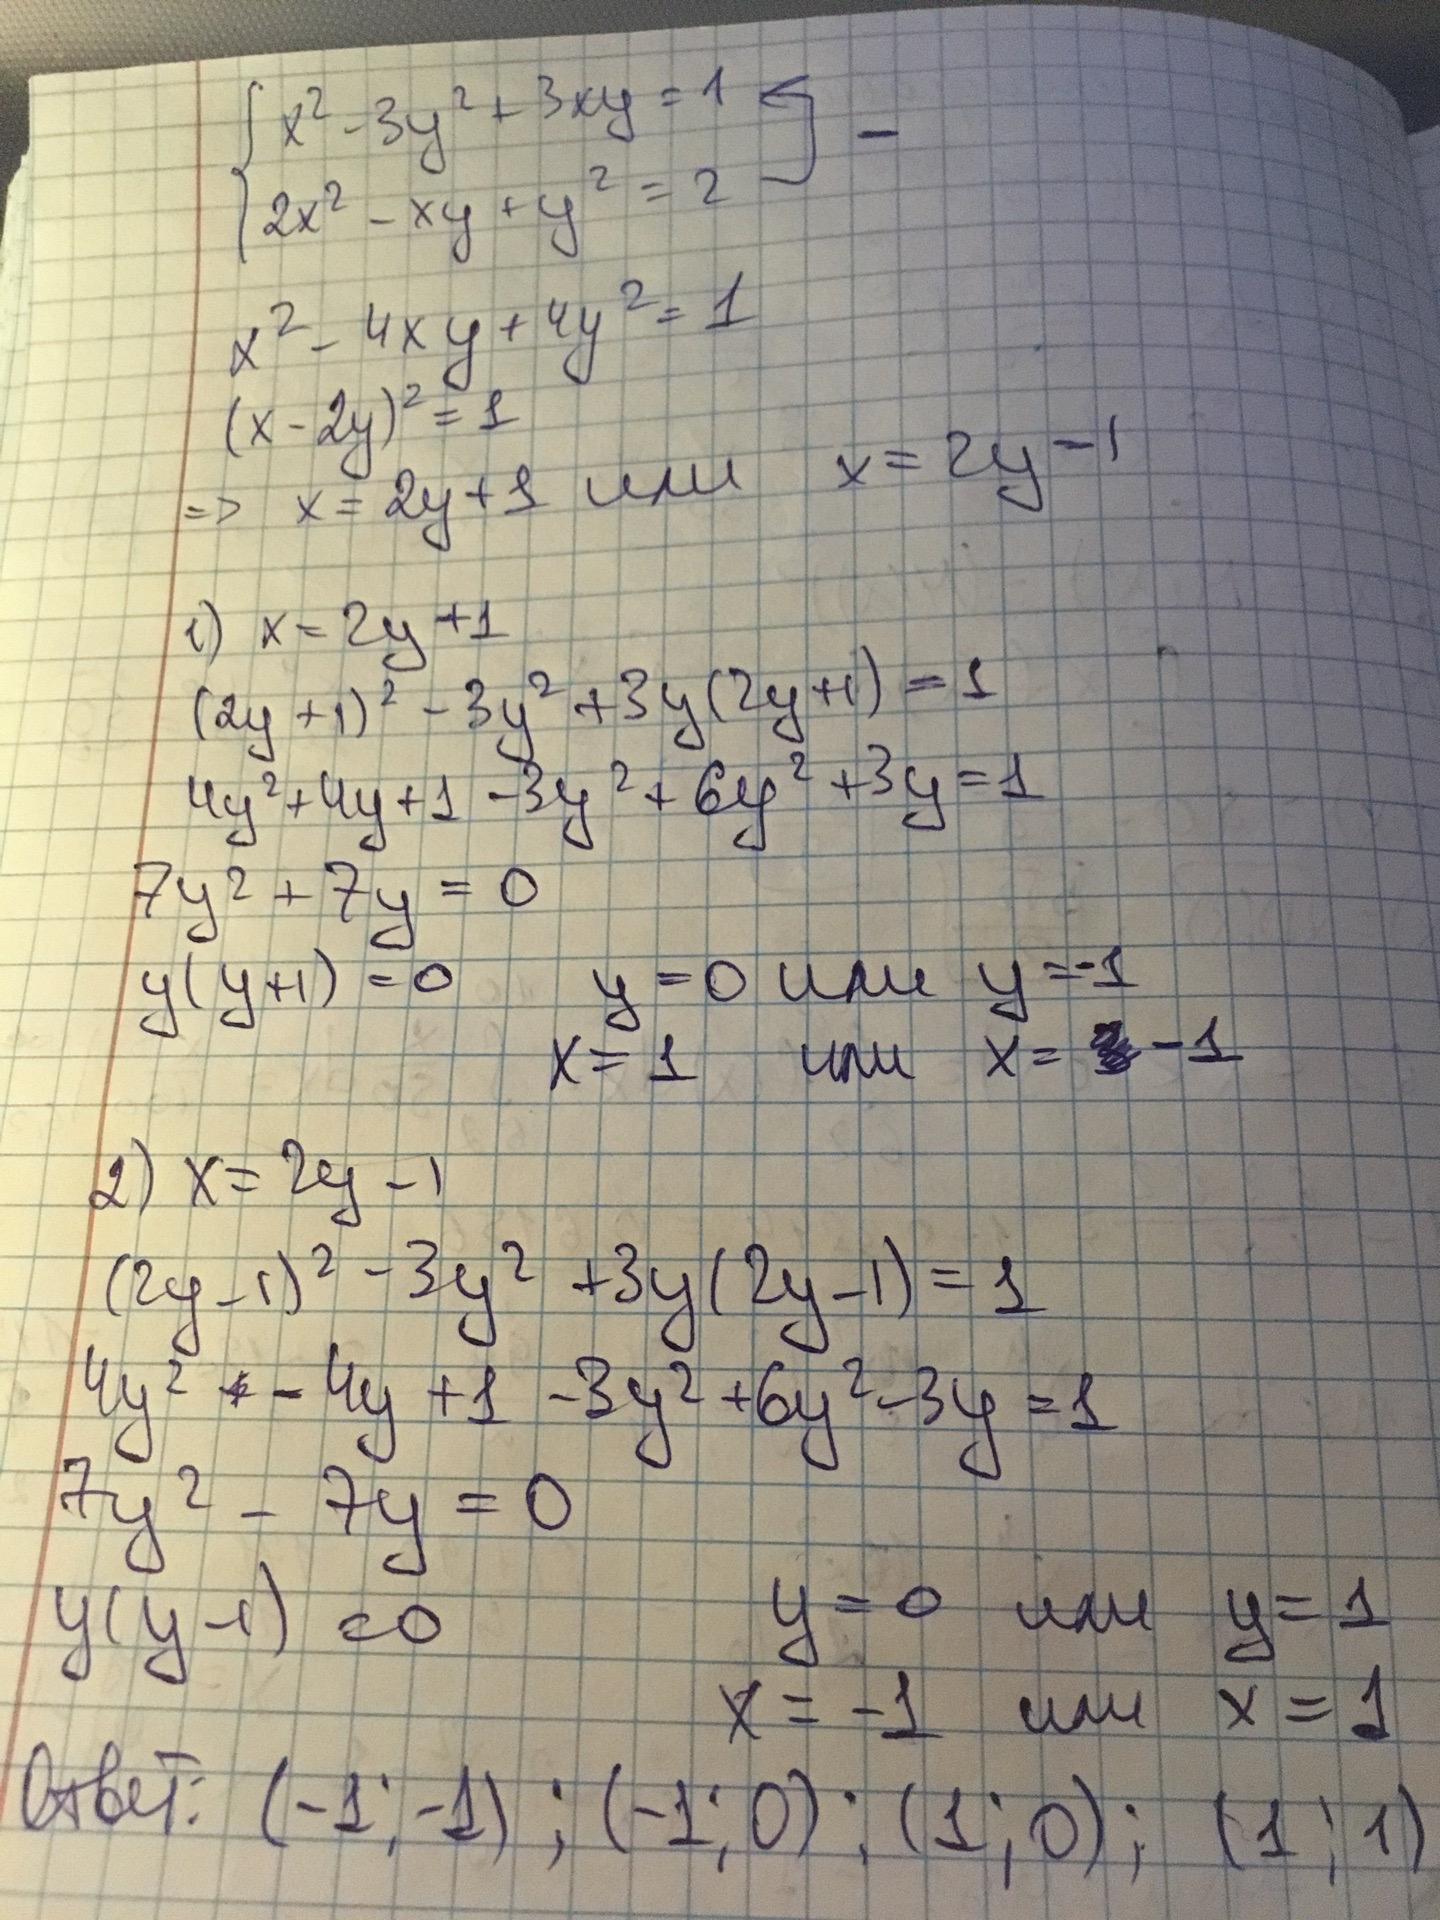 x² - 3y² + 3xy = 1 ] -
2x² - xy + y² = 2
x² - 4xy + 4y² = 1
(x - 2y)² = 1
=> x = 2y + 1 или x = 2y - 1
1) x = 2y + 1
(2y + 1)² - 3y² + 3y(2y + 1) = 1
4y² + 4y + 1 - 3y² + 6y² + 3y = 1
7y² + 7y = 0
y(y + 1) = 0 y = 0 или y = -1
x = 1 или x = -1
2) x = 2y - 1
(2y - 1)² - 3y² + 3y(2y - 1) = 1
4y² - 4y + 1 - 3y² + 6y² - 3y = 1
7y² - 7y = 0
y(y - 1) = 0 y = 0 или y = 1
x = -1 или x = 1
Ответ: (-1; -1); (-1; 0); (1; 0); (1; 1)